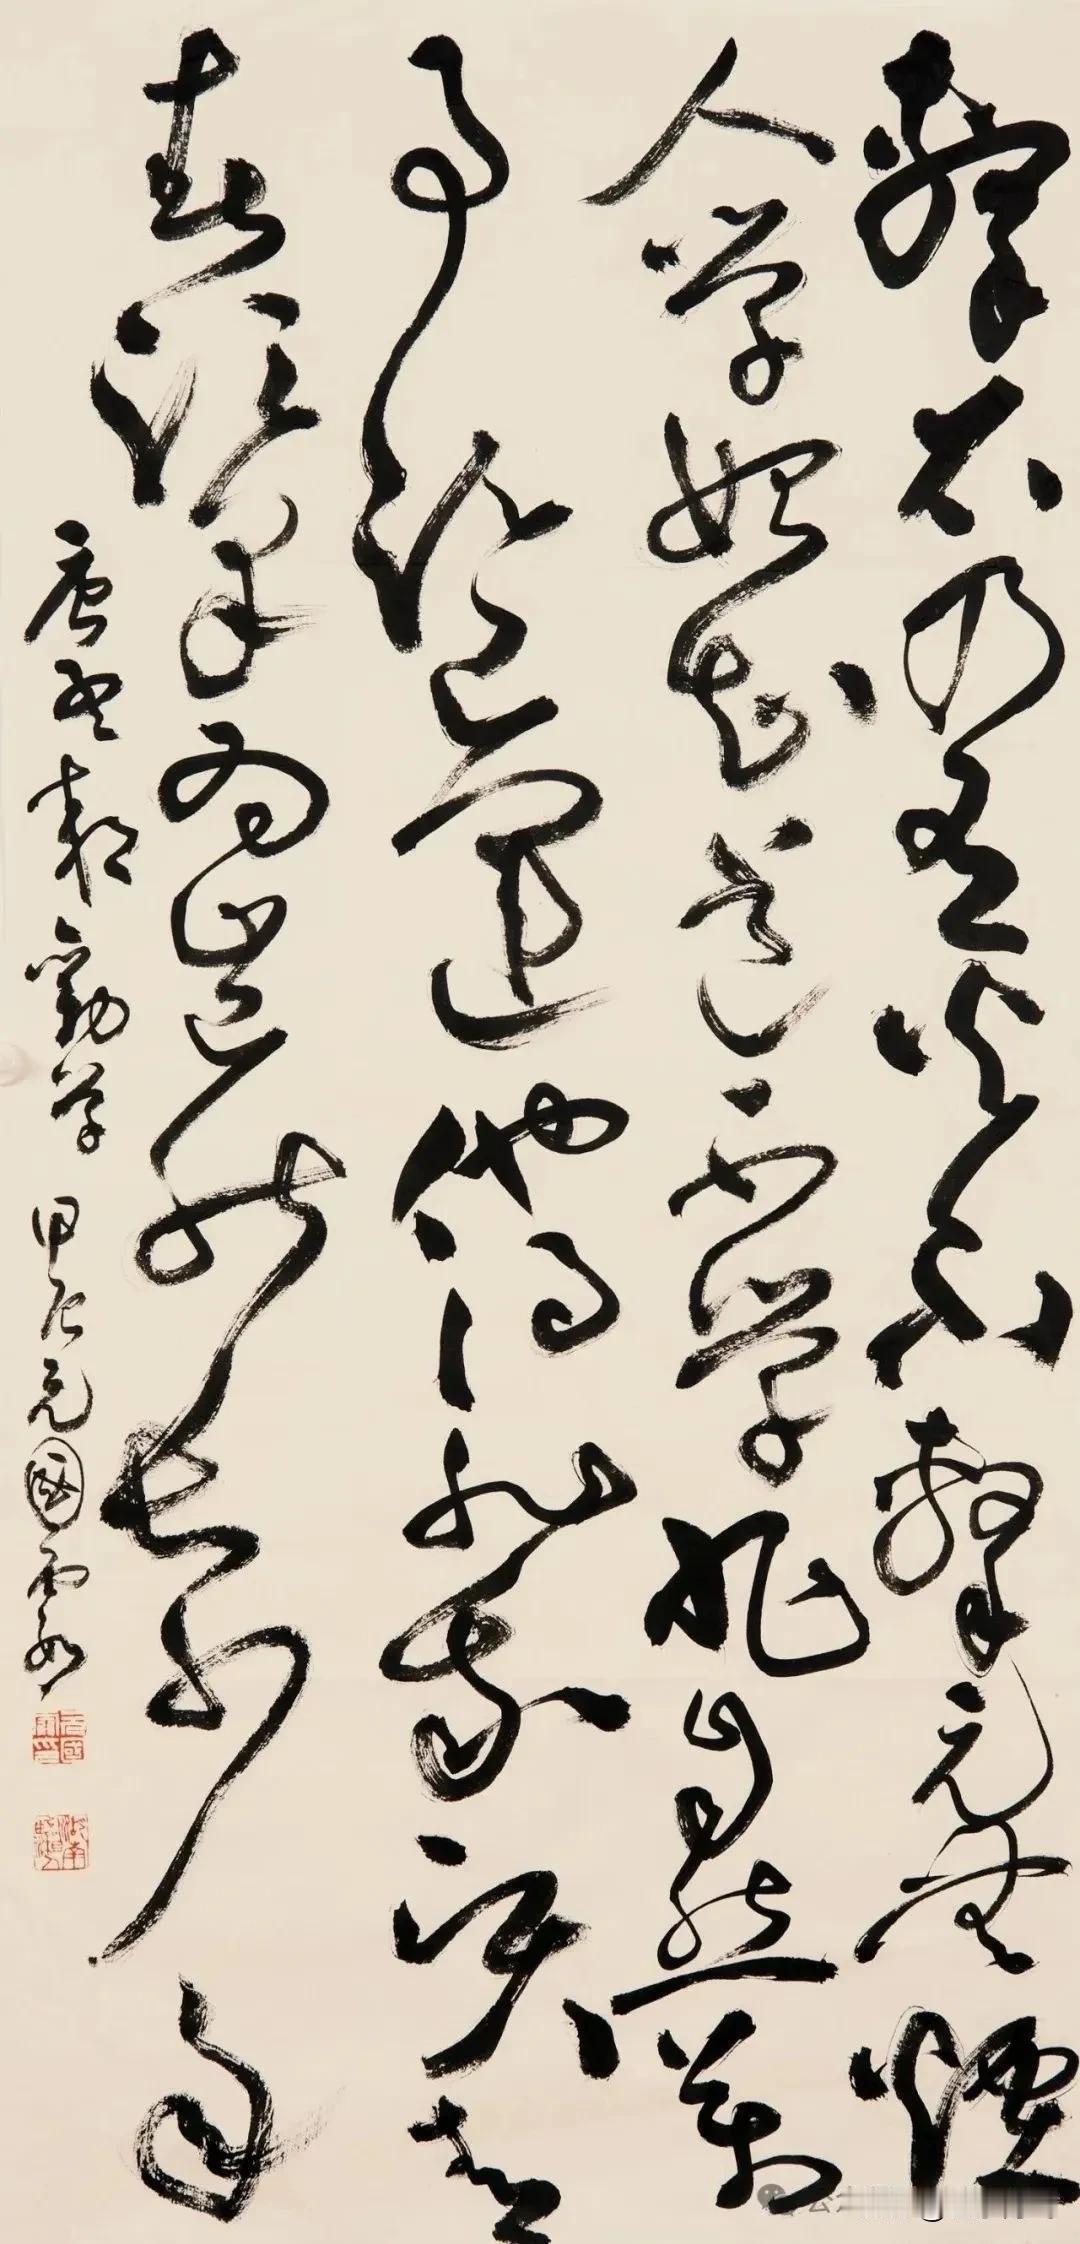 擊石乃有火不擊元無煙
人學始知道不學非自然萬
事須己運他得非我賢青
春須早為豈能長少年
唐孟郊勸學 甲辰元國霞